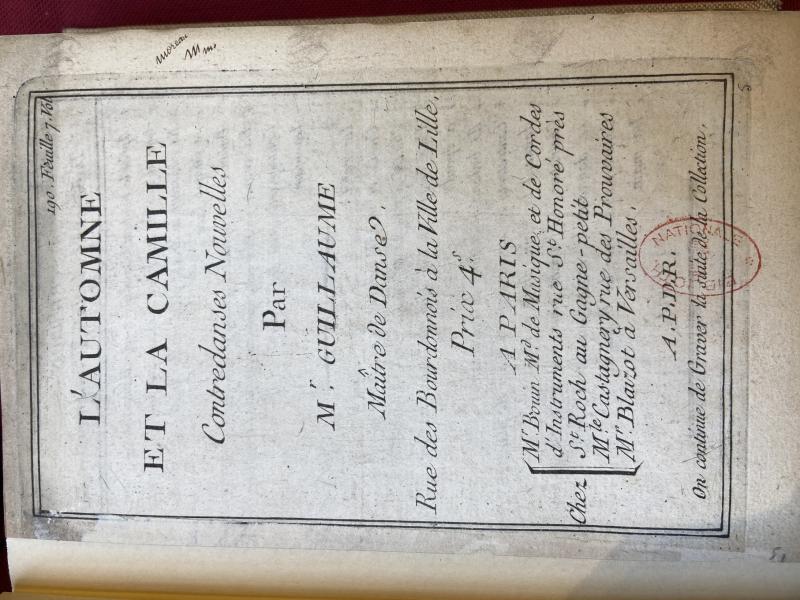 moreau
190. Feuille 7. Vol
L'AUTOMNE
ET LA CAMILLE
Contredanses Nouvelles
Par
Mr. GUILLAUME
Maître de Danse,
Rue des Bourdonnois à la Ville de Lille,
Prix 4.s
A PARIS
Chez
Mr. Bouin Md. de Musique et de Cordes
d'Instruments rue St. Honoré près
St. Roch au Gagne-petit
Mlle Castagnery rue des Prouvaires
Mr. Blaizot à Versailles.
A.P.D.R.
On continue de Graver la suite de la Collection.
NATIONALE